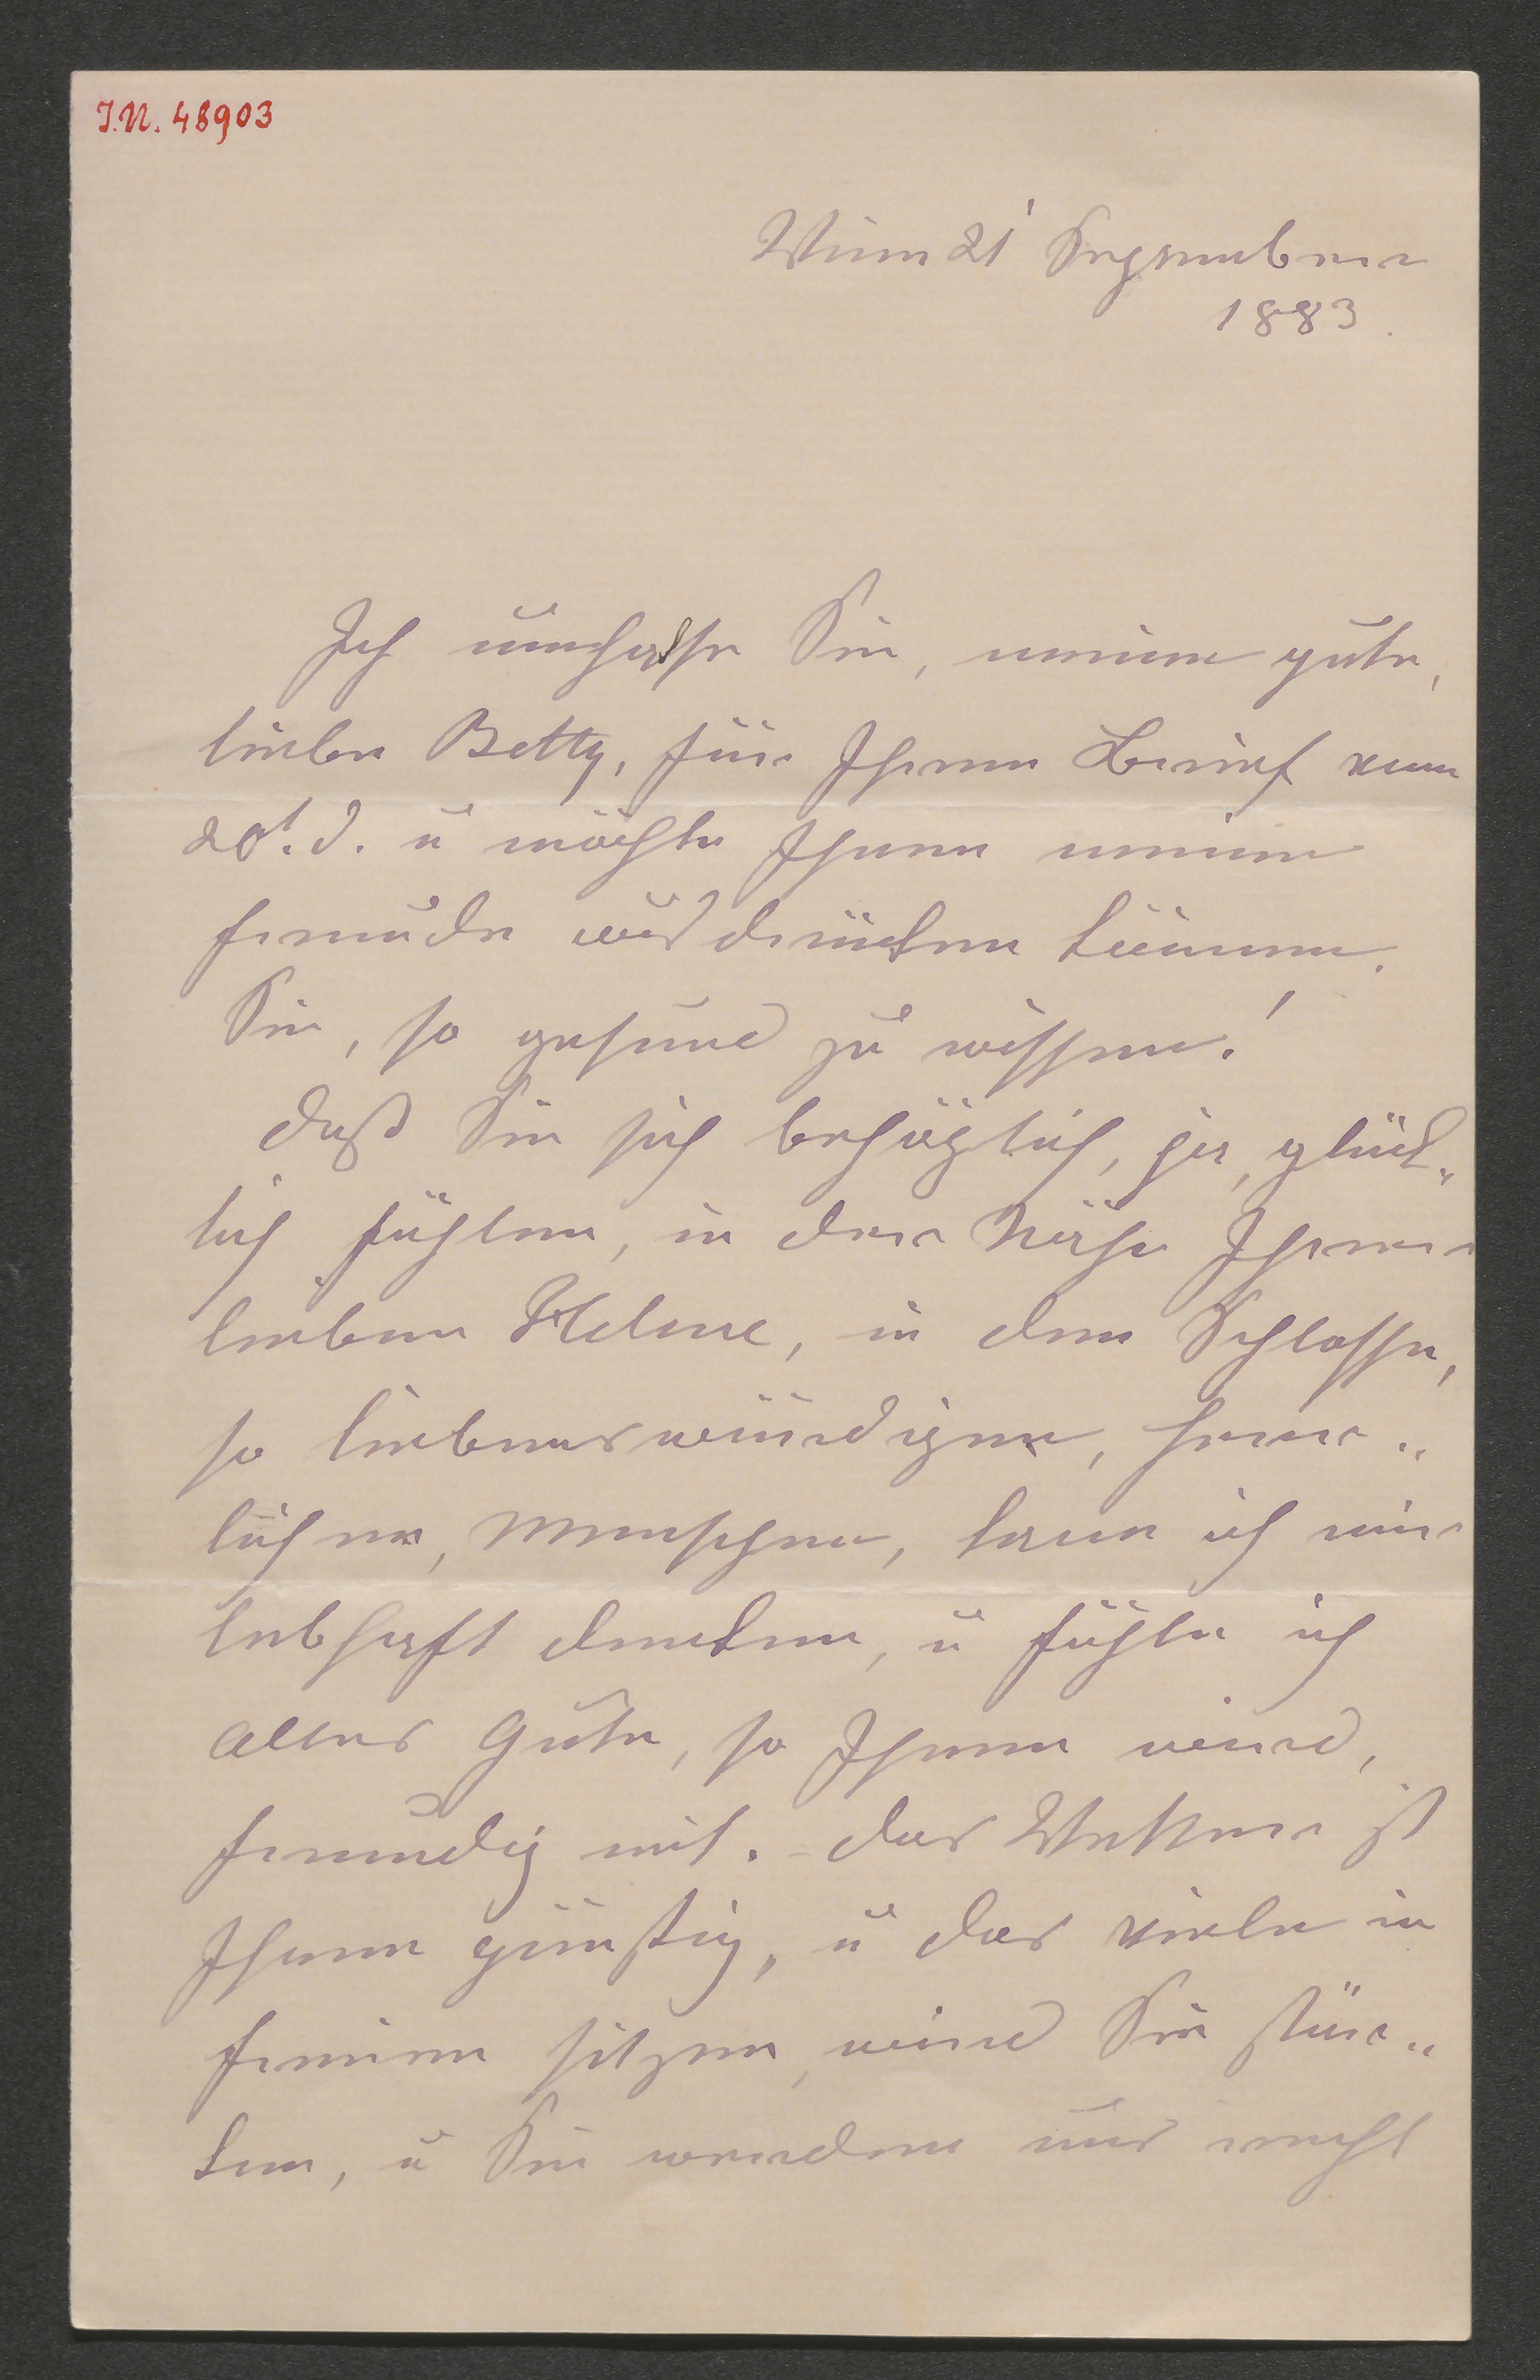 I.N. 48903
Wien 21' September
1883.
Ich umhalse Sie, meine gute,
liebe Betty, für Ihren Brief vom
20t. d. u möchte Ihnen meine
Freude ausdrücken können.
Sie, so gesund zu wissen!
Daß Sie sich behäglich, ja, glück„
lich fühlen, in der Nähe Ihrer
lieben Helene, in dem Schlosse,
so liebenswürdigen, herr„
lichen, Menschen, kann ich mir
lebhaft denken, u fühle ich
alles Gute, so Ihnen wird,
freudig mit. – Das Wetter ist
Ihnen günstig, u das viele im
freien sitzen, wird Sie stär„
ken, u Sie werden uns recht